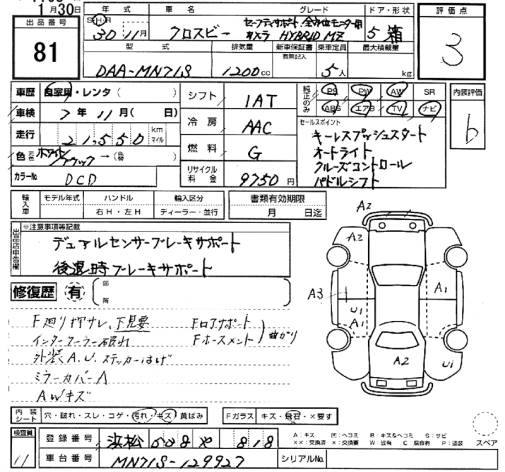 月30日
年 式 グレード ドア・形状 評価点
出品番号 SH 30年 11月 クロスビー HYBRID MZ 5 箱
81 3
型 式 排気量 新車保証書 乗車定員 最大積載量
DAA-MN71S 1200cc 5人 kg
車歴 自家用・レンタ( ) シフト 1AT 純正のみ PS PW AW SR 内装評価
車検 7年 11月( 日) ABS エアB TV ナビ b
走行 21,550 km マイル 冷房 AAC セールスポイント
キーレスプッシュスタート
色 ホワイト/ブラック→ 燃料 G オートライト
クルーズコントロール
カラーNo DCD リサイクル料金 9750円 パドルシフト
輸入車 モデル年式 ハンドル 輸入区分 書類有効期限
年 右H・左H ディーラー・並行 月 日迄
※注意事項等記載
デュアルセンサーブレーキサポート
後退時ブレーキサポート
A2
A2
修復歴 有 部所 A3 A1 A1
F廻り押サレ、下見要 Fロアサポート
インタークーラー破れ 曲がり U1 A1
外装A.U.ステッカーはげ A2 U1
ミラーカバーA
AWキズ
内装シート 穴・破れ・スレ・コゲ・汚れ・キズ・黄ばみ Fガラス キズ・飛石・×要す
登録番号 浜松 508 818 A:キズ E:ヘコミ B:キズ&ヘコミ S:サビ スペア
検査員 11 車台番号 MN71S-129927 シリアルNo.